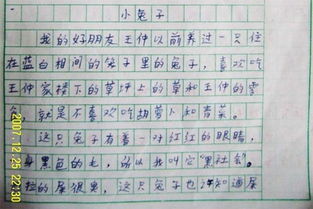 小兔子
我的好朋友王仲以前养过一只住
在蓝白相间的笼子里的兔子，喜欢吃
王仲家楼下的草坪上的草和王仲的零
食，就是不喜欢吃胡萝卜和青菜。
这只兔子有着一对红红的眼睛，
身黑色的毛，所以我叫它"黑社会"。
拉的屎很臭，这只兔子也不知道屎
2007.12.25 22:30